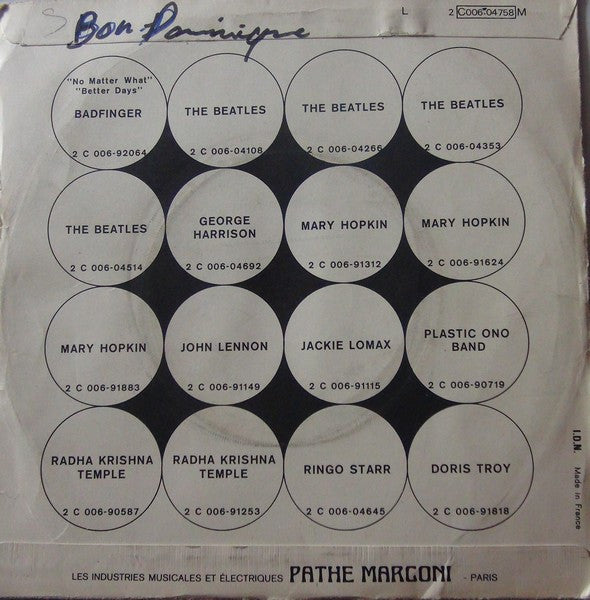 S Bon Dominique
L 2 C006-04758 M
"No Matter What"
"Better Days"
BADFINGER
2 C 006-92064
THE BEATLES
2 C 006-04108
THE BEATLES
2 C 006-04266
THE BEATLES
2 C 006-04353
THE BEATLES
2 C 006-04514
GEORGE
HARRISON
2 C 006-04692
MARY HOPKIN
2 C 006-91312
MARY HOPKIN
2 C 006-91624
MARY HOPKIN
2 C 006-91883
JOHN LENNON
2 C 006-91149
JACKIE LOMAX
2 C 006-91115
PLASTIC ONO
BAND
2 C 006-90719
RADHA KRISHNA
TEMPLE
2 C 006-90587
RADHA KRISHNA
TEMPLE
2 C 006-91253
RINGO STARR
2 C 006-04645
DORIS TROY
2 C 006-91818
I.D.N. Made in France
LES INDUSTRIES MUSICALES ET ÉLECTRIQUES PATHE MARCONI - PARIS